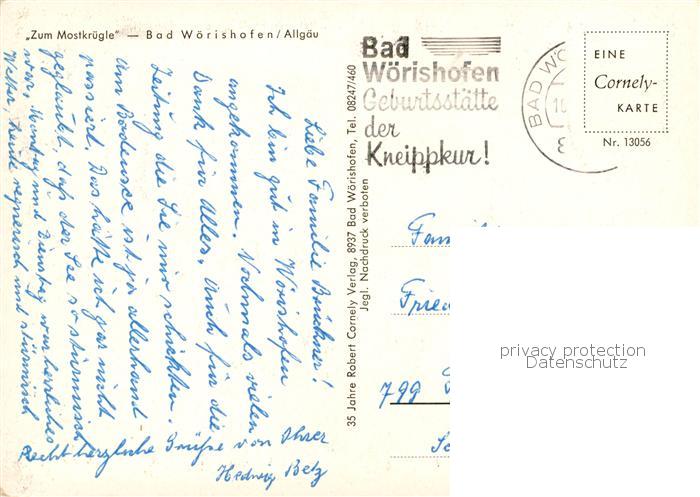 „Zum Mostkrügle" — Bad Wörishofen/Allgäu
Liebe Familie Büchner!
Ich bin gut in Wörishofen
angekommen. Nochmals vielen
Dank für Alles. Auch für die
Zeitung die Sie mir schickten.
Am Bodensee ist ja allerhand
passiert. Das hätte ich gar nicht
geglaubt daß der See so stürmisch
war. Montag und Dienstag war herrliches
Wetter, heute regnerisch und stürmisch
Recht herzliche Grüße von Ihrer
Hedwig Betz
35 Jahre Robert Cornely Verlag, 8937 Bad Wörishofen, Tel. 08247/460
Jegl. Nachdruck verboten
Bad
Wörishofen
Geburtsstätte
der
Kneippkur!
BAD WÖ
EINE
Cornely-
KARTE
Nr. 13056
Fam
Fried
799
privacy protection
Datenschutz